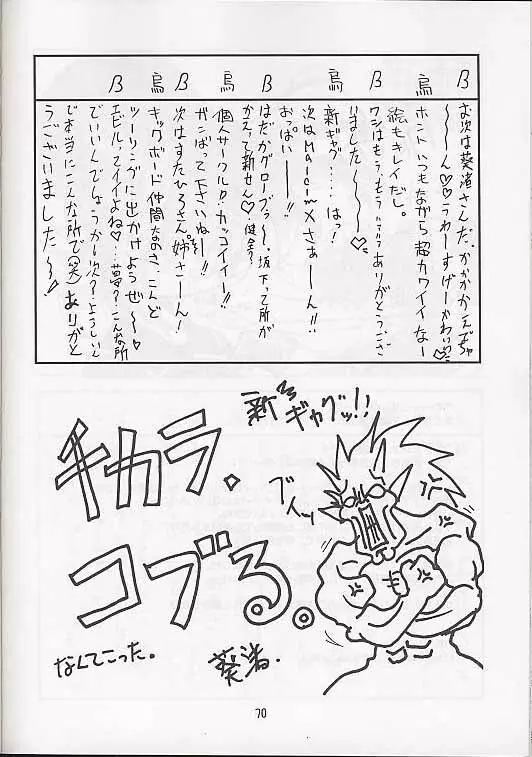 β お次は葵渚さんだ、かかかかえぢゃ
〜〜ん♡♡うわーすげーかわいい♡
烏 ホントいつもながら超カワイイなー
絵もキレイだし。
β ワシはもう、もう……ありがとうござ
いました〜〜〜♡
烏 新ギャグ……はっ!
次はMalcimXさぁーん!!
おっぱいー!!
β はだかグローブぅ〜、坂下って所が
かえって新せん♡健全?
烏 個人サークル□・カッコイイー!!
ガンばって下さいねー!!
β 次はすたひろさん、姉さーん!
烏 キックボード仲間なのさ、こんど
ツーリングに出かけようぜ〜〜♡
β エビル、ってイイよね♡…夢?こんな所
でいいんでしょうか?次?ようしいん
で本当にこんな所で(笑)ありがと
うございました〜〜!
新ギャグッ!!
チカラ。
ブイッ
コブる。
なんてこった。
葵渚.
70